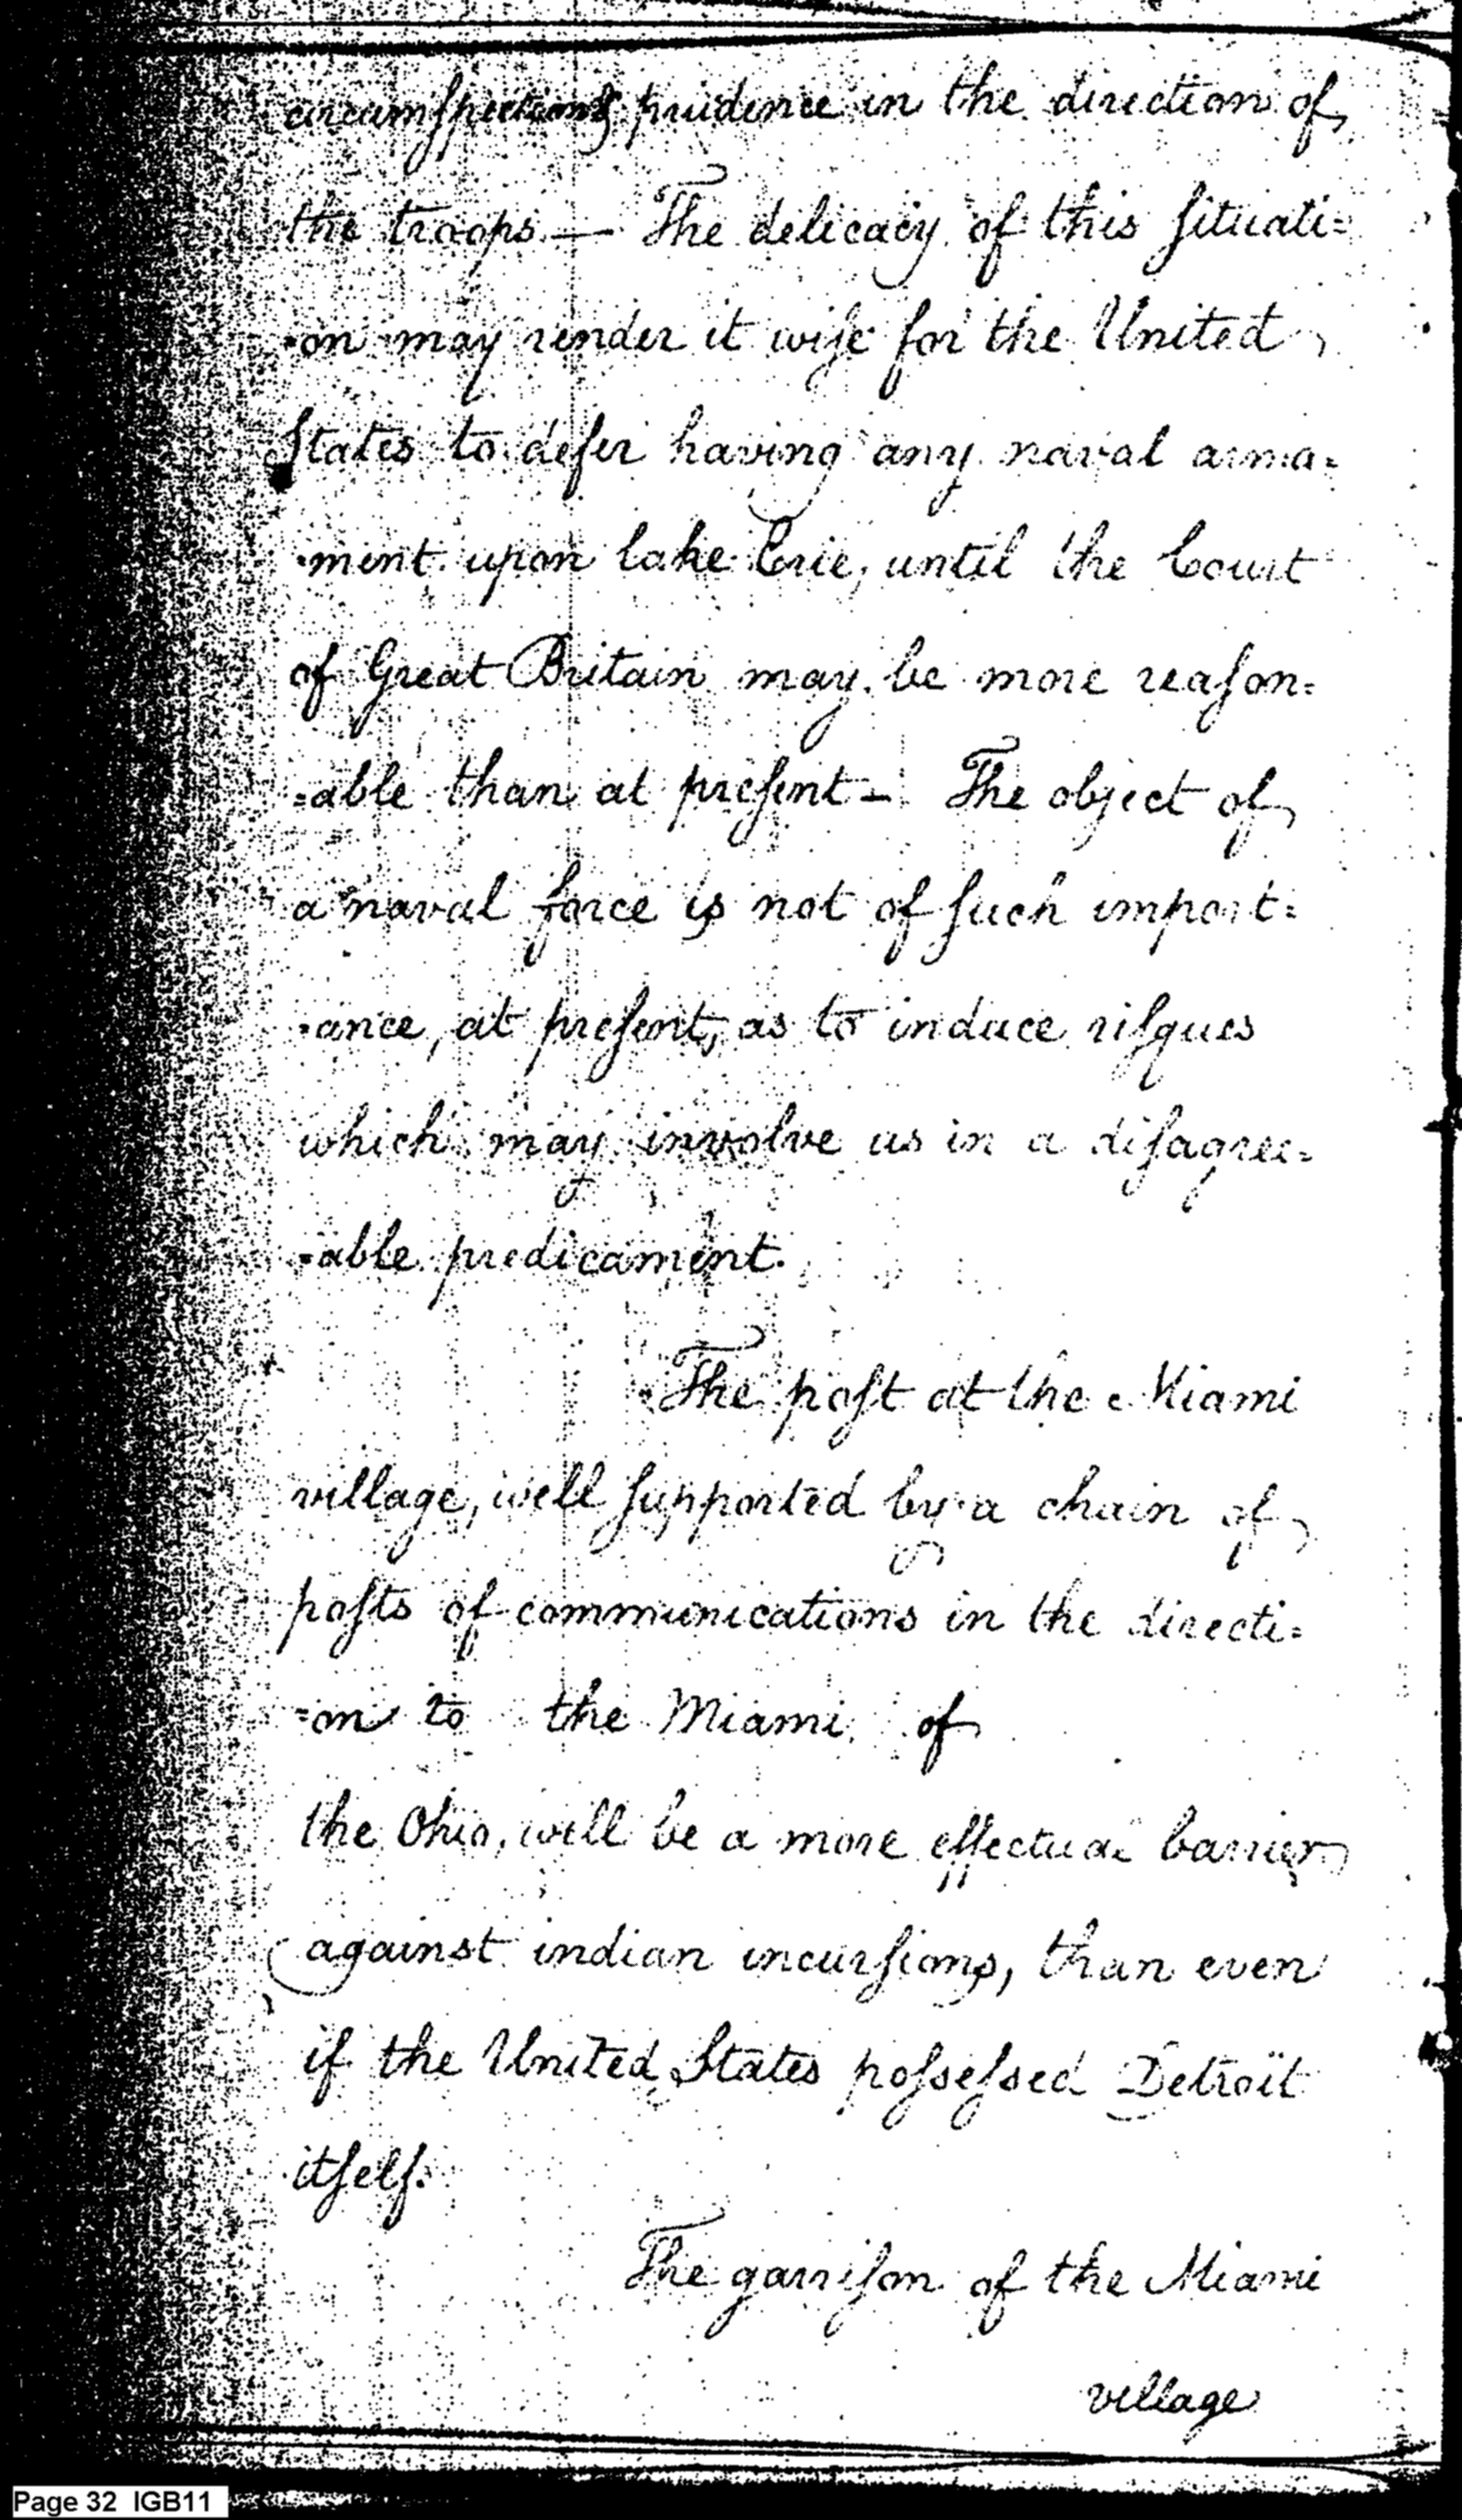 circumspection & prudence in the direction of
the troops — The delicacy of this situati=
=on may render it wise for the United
States to defer having any naval arma=
=ment upon lake Erie, until the Court
of Great Britain may be more reason=
=able than at present — The object of
a naval force is not of such import=
=ance, at present, as to induce risques
which may involve us in a disagree=
=able predicament.
The post at the Miami
village, well supported by a chain of
posts of communications in the directi=
=on to the Miami of
the Ohio, will be a more effectual barrier
against indian incursions, than even
if the United States possessed Detroit
itself.
The garrison of the Miami
village
Page 32 IGB11